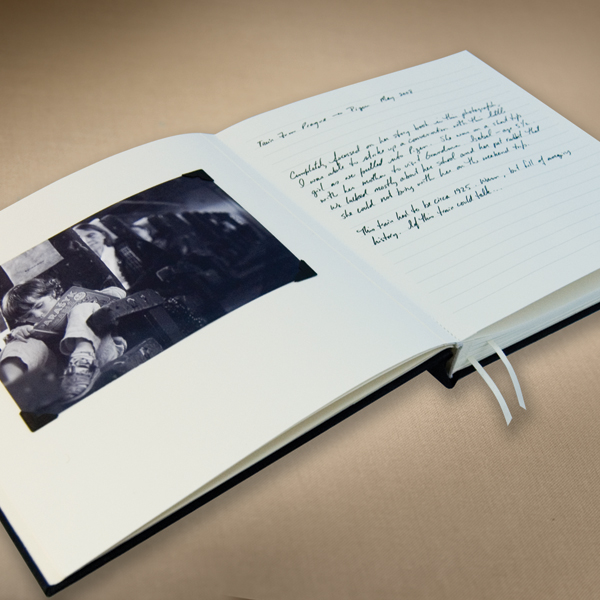 Train From Prague to Pizen May 2007
Completely focused on her story book in this photograph,
I was able to strike up a conversation with this little
girl as we pulled into Pizen. She was on a short trip
with her mother to visit Grandmama. Isabel - age 5 1/2
We talked mostly about her school and her pet rabbit that
she could not bring with her on the weekend trip.
This train had to be circa 1925, warm, but full of amazing
history. If this train could talk....